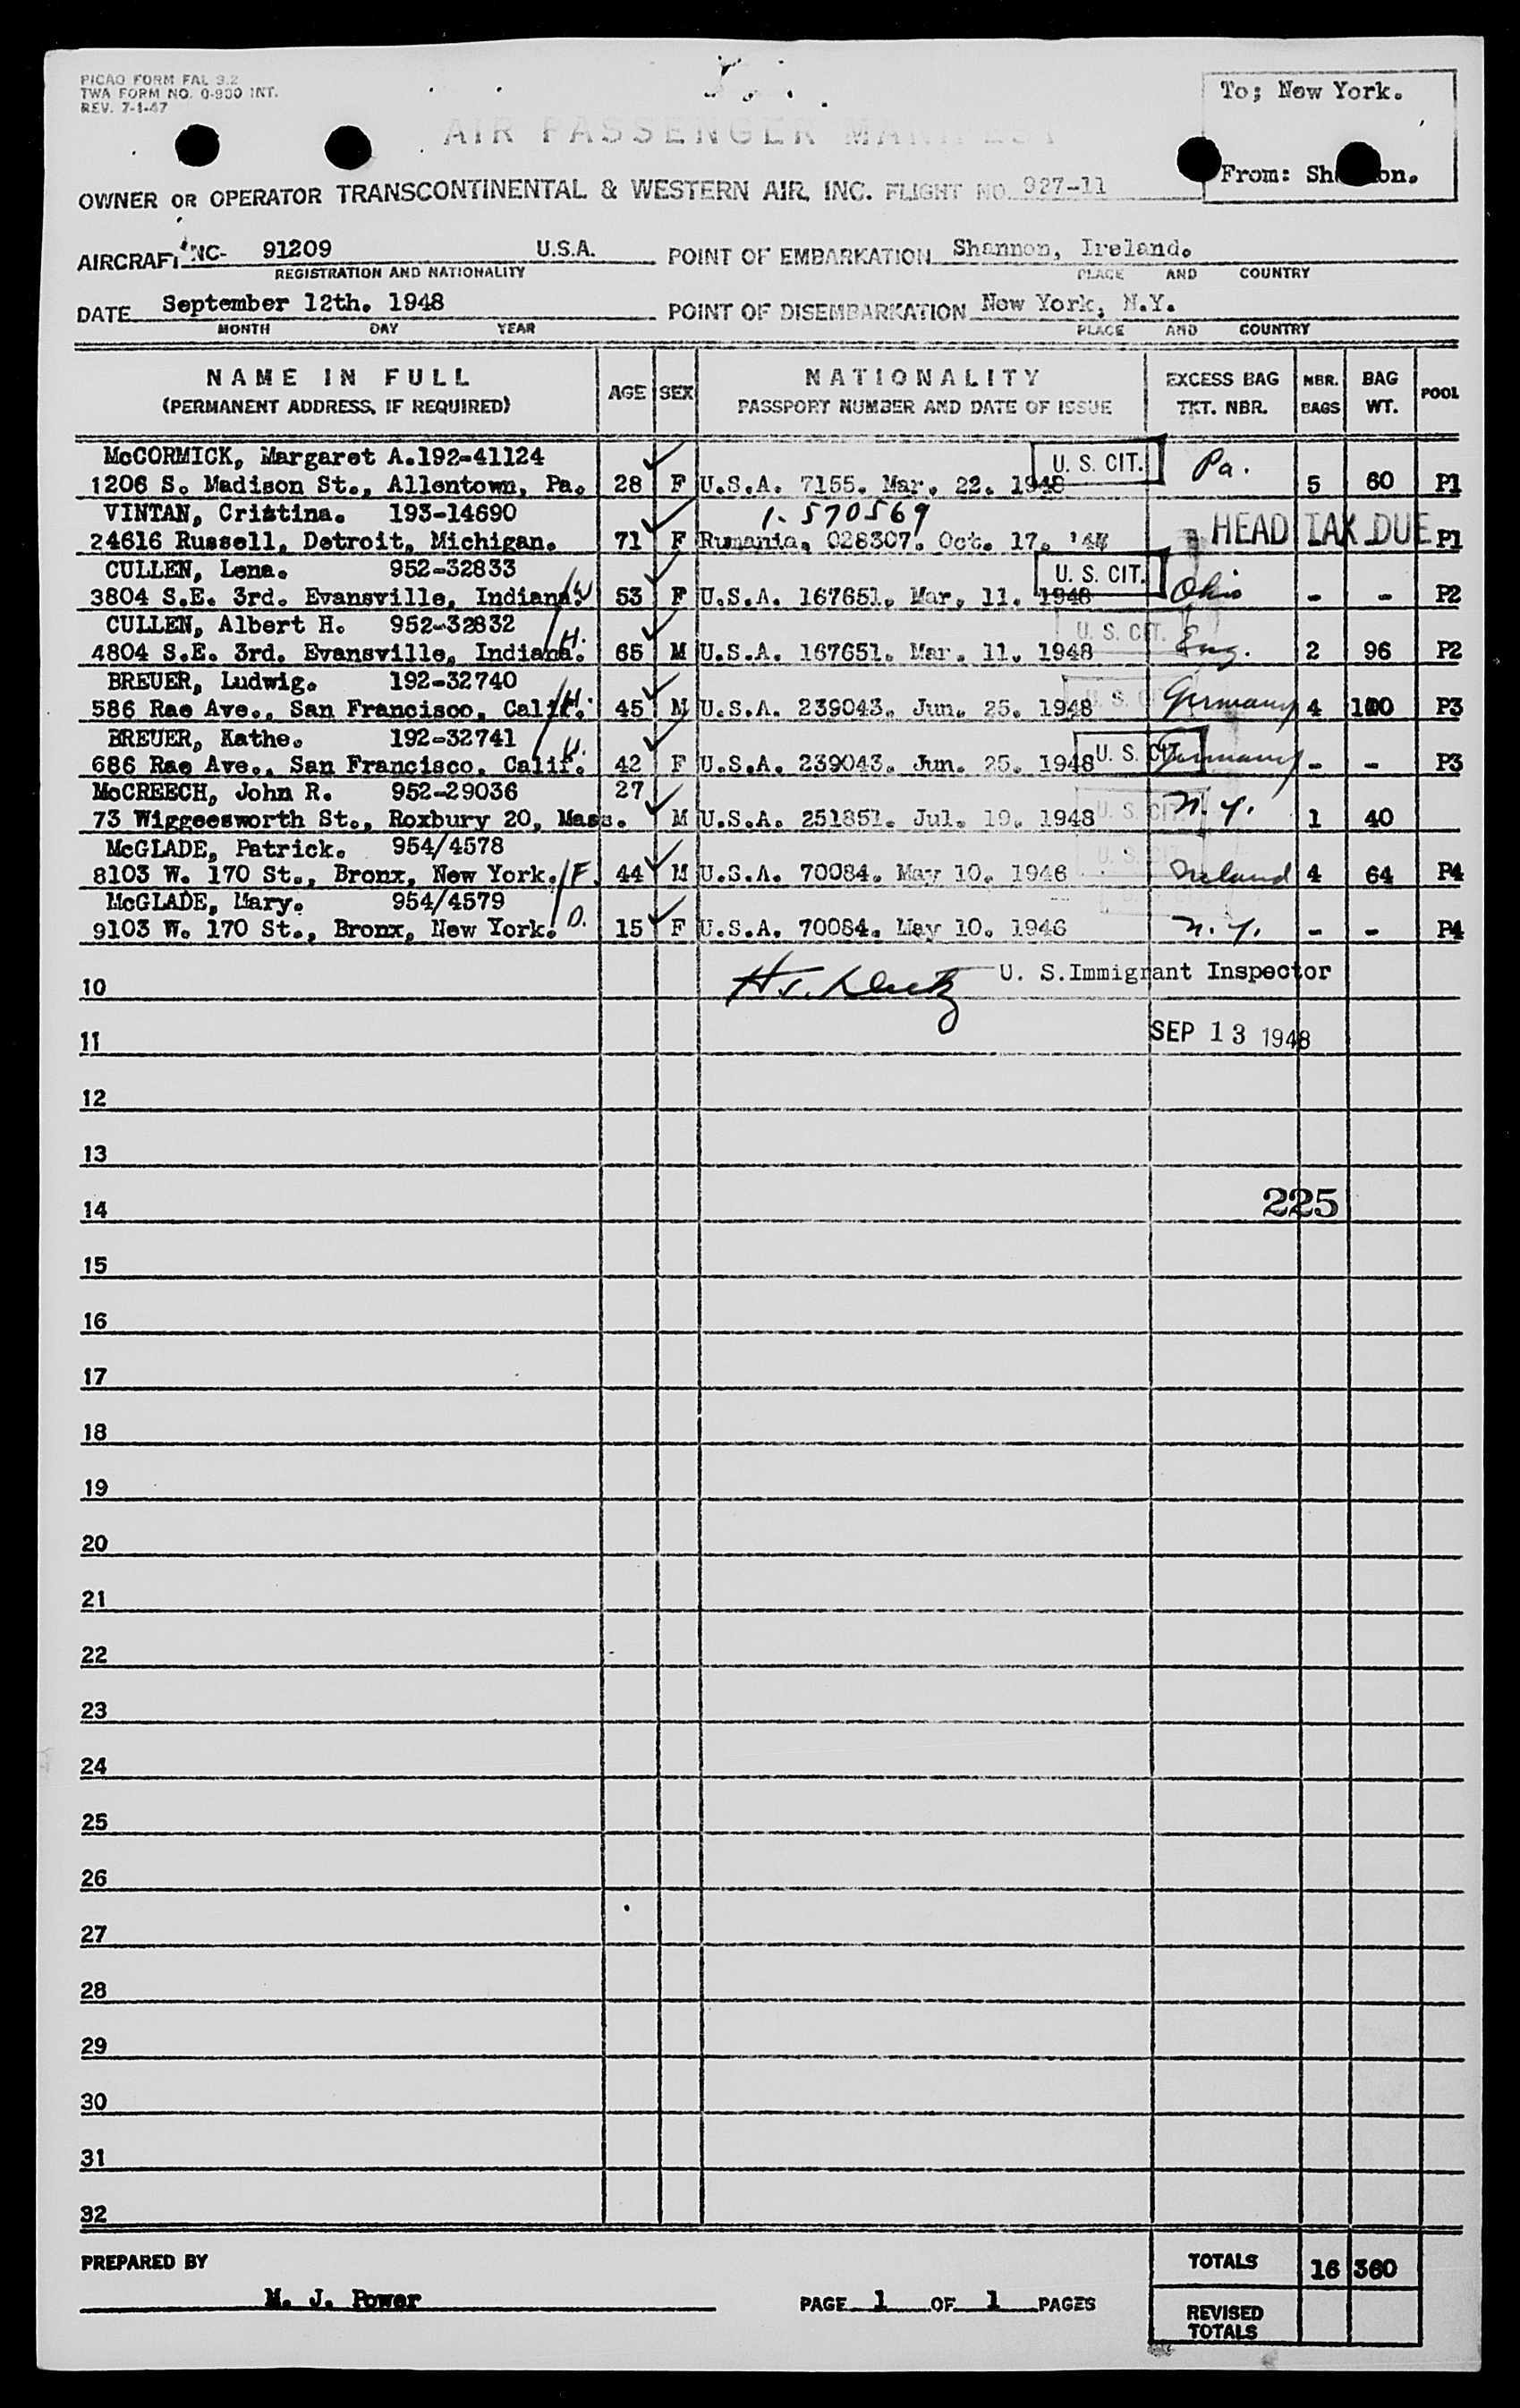 PICAO FORM FAL 9.2
TWA FORM NO. 0-900 INT.
REV. 7-1-47
To; New York.
AIR PASSENGER MANIFEST
From: Shannon.
OWNER OR OPERATOR TRANSCONTINENTAL & WESTERN AIR, INC. FLIGHT NO. 927-11
AIRCRAFT NC- 91209 U.S.A. POINT OF EMBARKATION Shannon, Ireland.
REGISTRATION AND NATIONALITY PLACE AND COUNTRY
DATE September 12th. 1948 POINT OF DISEMBARKATION New York, N.Y.
MONTH DAY YEAR PLACE AND COUNTRY
NAME IN FULL (PERMANENT ADDRESS, IF REQUIRED) AGE SEX NATIONALITY PASSPORT NUMBER AND DATE OF ISSUE EXCESS BAG TKT. NBR. NBR. BAGS BAG WT. POOL
McCORMICK, Margaret A.192-41124
1206 S. Madison St., Allentown, Pa. 28 F U.S.A. 7155. Mar. 22. 1948 U. S. CIT. Pa. 5 60 P1
VINTAN, Cristina. 193-14690 1-570569
24616 Russell, Detroit, Michigan. 71 F Rumania. 028307. Oct. 17. HEAD TAX DUE P1
CULLEN, Lena. 952-32833
3804 S.E. 3rd. Evansville, Indiana. /W 53 F U.S.A. 167651. Mar. 11. 1948 U. S. CIT. Ohio - - P2
CULLEN, Albert H. 952-32832
4804 S.E. 3rd. Evansville, Indiana. /H. 65 M U.S.A. 167651. Mar. 11. 1948 U. S. CIT. Eng. 2 96 P2
BREUER, Ludwig. 192-32740
586 Rae Ave., San Francisco, Calif. /H. 45 M U.S.A. 239043. Jun. 25. 1948 U. S. CIT. Germany 4 100 P3
BREUER, Kathe. 192-32741
686 Rae Ave., San Francisco, Calif. /W. 42 F U.S.A. 239043. Jun. 25. 1948 U. S. CIT. Germany - - P3
McCREECH, John R. 952-29036 27
73 Wiggeesworth St., Roxbury 20, Mass. M U.S.A. 251851. Jul. 19. 1948 U. S. CIT. N.Y. 1 40
McGLADE, Patrick. 954/4578
8103 W. 170 St., Bronx, New York. /F. 44 M U.S.A. 70084. May 10. 1946 U. S. CIT. Ireland 4 64 P4
McGLADE, Mary. 954/4579
9103 W. 170 St., Bronx, New York. /D. 15 F U.S.A. 70084. May 10. 1946 N.Y. - - P4
U. S.Immigrant Inspector
10
SEP 13 1948
11
12
13
225
14
15
16
17
18
19
20
21
22
23
24
25
26
27
28
29
30
31
32
PREPARED BY TOTALS 16 360
M. J. Power PAGE 1 OF 1 PAGES
REVISED
TOTALS